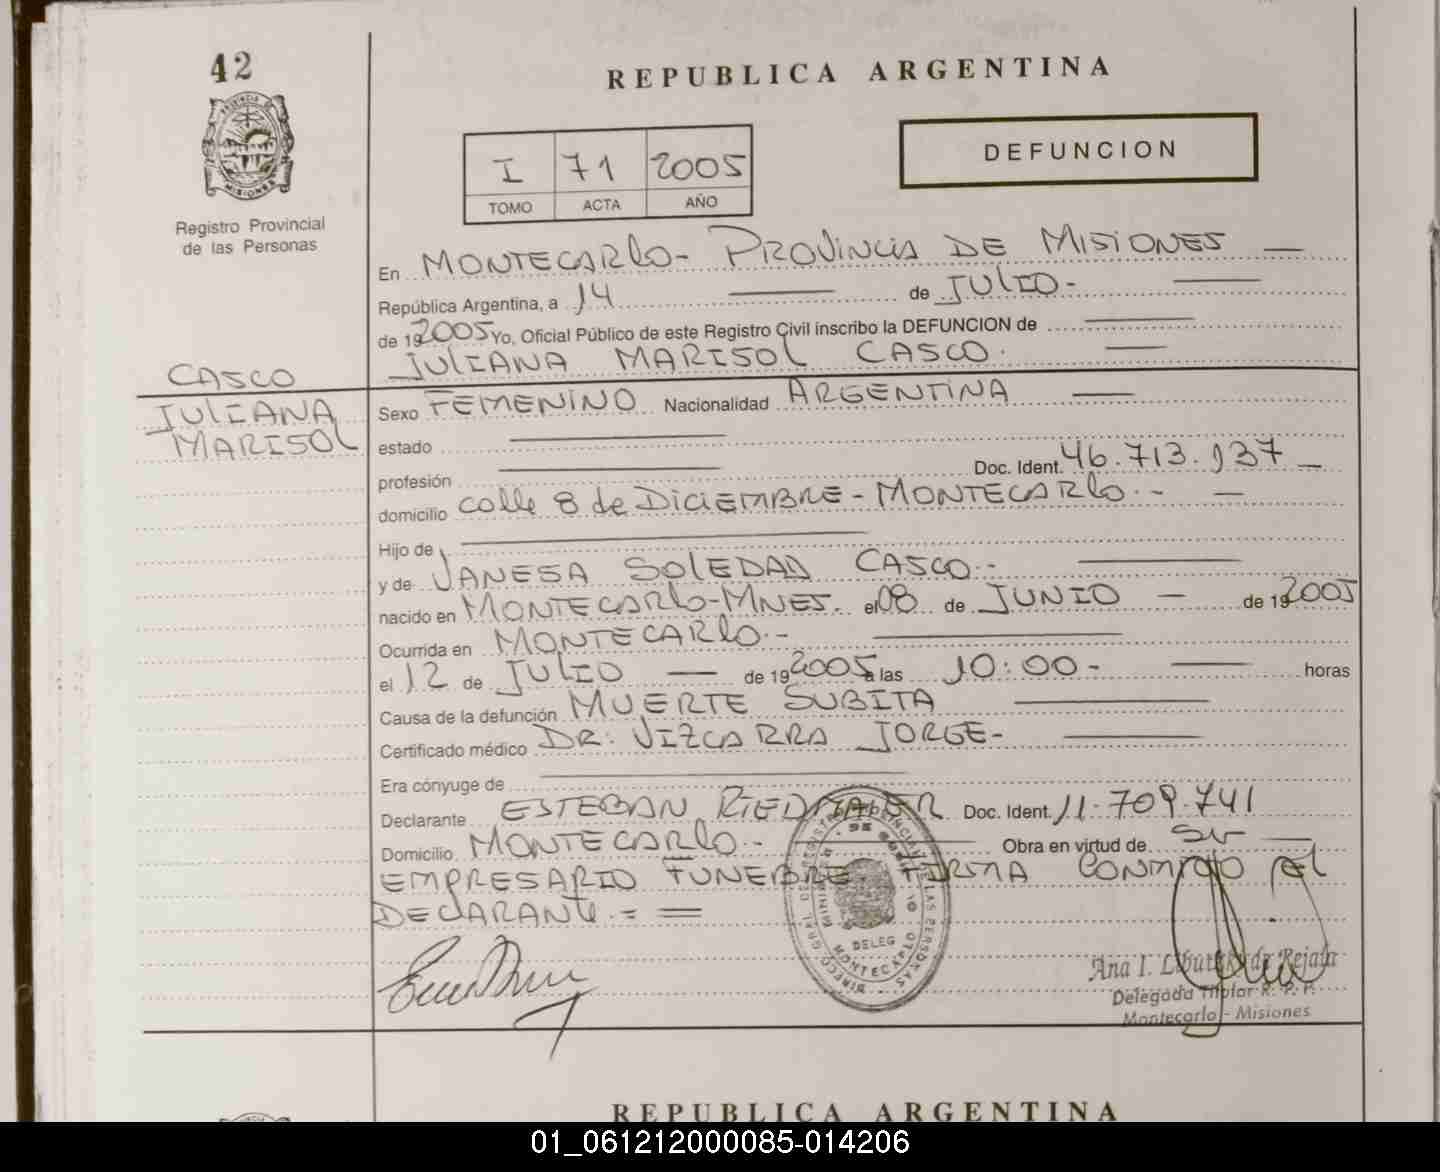 42
REPUBLICA ARGENTINA
PROVINCIA DE
MISIONES
Registro Provincial
de las Personas
I 71 2005
TOMO ACTA AÑO
DEFUNCION
En MONTECARLO- PROVINCIA DE MISIONES —
República Argentina, a 14 — de JULIO- —
de 192005 Yo, Oficial Público de este Registro Civil inscribo la DEFUNCION de —
JULIANA MARISOL CASCO. —
CASCO
JULIANA
MARISOL
Sexo FEMENINO Nacionalidad ARGENTINA —
estado —
profesión — Doc. Ident. 46.713.137 —
domicilio calle 8 de DICIEMBRE - MONTECARLO.- —
Hijo de —
y de VANESA SOLEDAD CASCO.- —
nacido en MONTECARLO-MNES. el 08 de JUNIO — de 192005
Ocurrida en MONTECARLO.- —
el 12 de JULIO — de 192005 a las 10:00- — horas
Causa de la defunción MUERTE SUBITA —
Certificado médico DR: VIZCARRA JORGE- —
Era cónyuge de —
Declarante ESTEBAN RIEDMAIER Doc. Ident. 11.709.741
Domicilio MONTECARLO.- — Obra en virtud de SU —
EMPRESARIO FUNEBRE. FIRMA CONMIGO EL
DECLARANTE.= =
DELEG
MONTECARLO
Ana I. de Rejala
Delegada Titular R. P. P.
Montecarlo - Misiones
REPUBLICA ARGENTINA
01_061212000085-014206